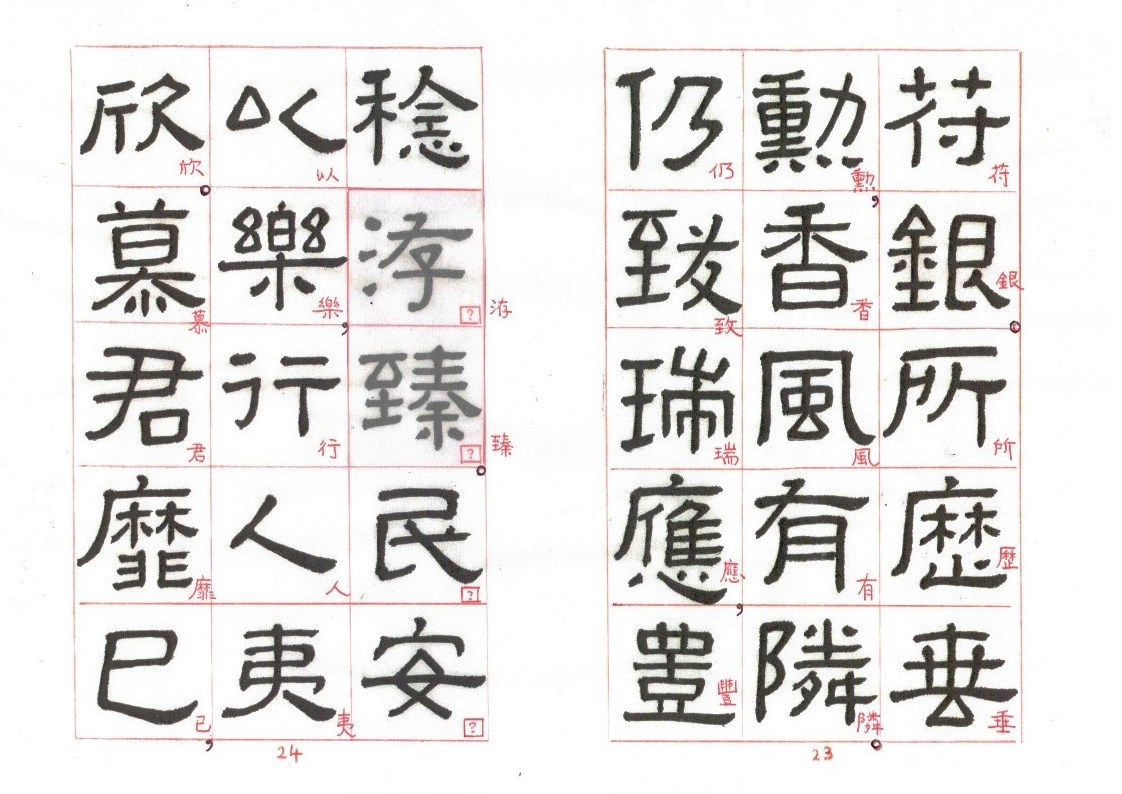 苻銀。所歷垂
苻銀所歷垂
勳，香風有隣。
勳香風有隣
仍致瑞應，豐
仍致瑞應豐
23
稔洊臻。民安
?洊?臻??
以樂，行人夷
以樂行人夷
欣。慕君靡已，
欣慕君靡已
24